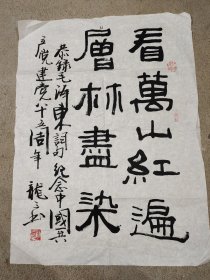 看萬山紅遍
層林盡染
恭錄毛澤東詞紀念中國共
产党建党八十五周年 龍